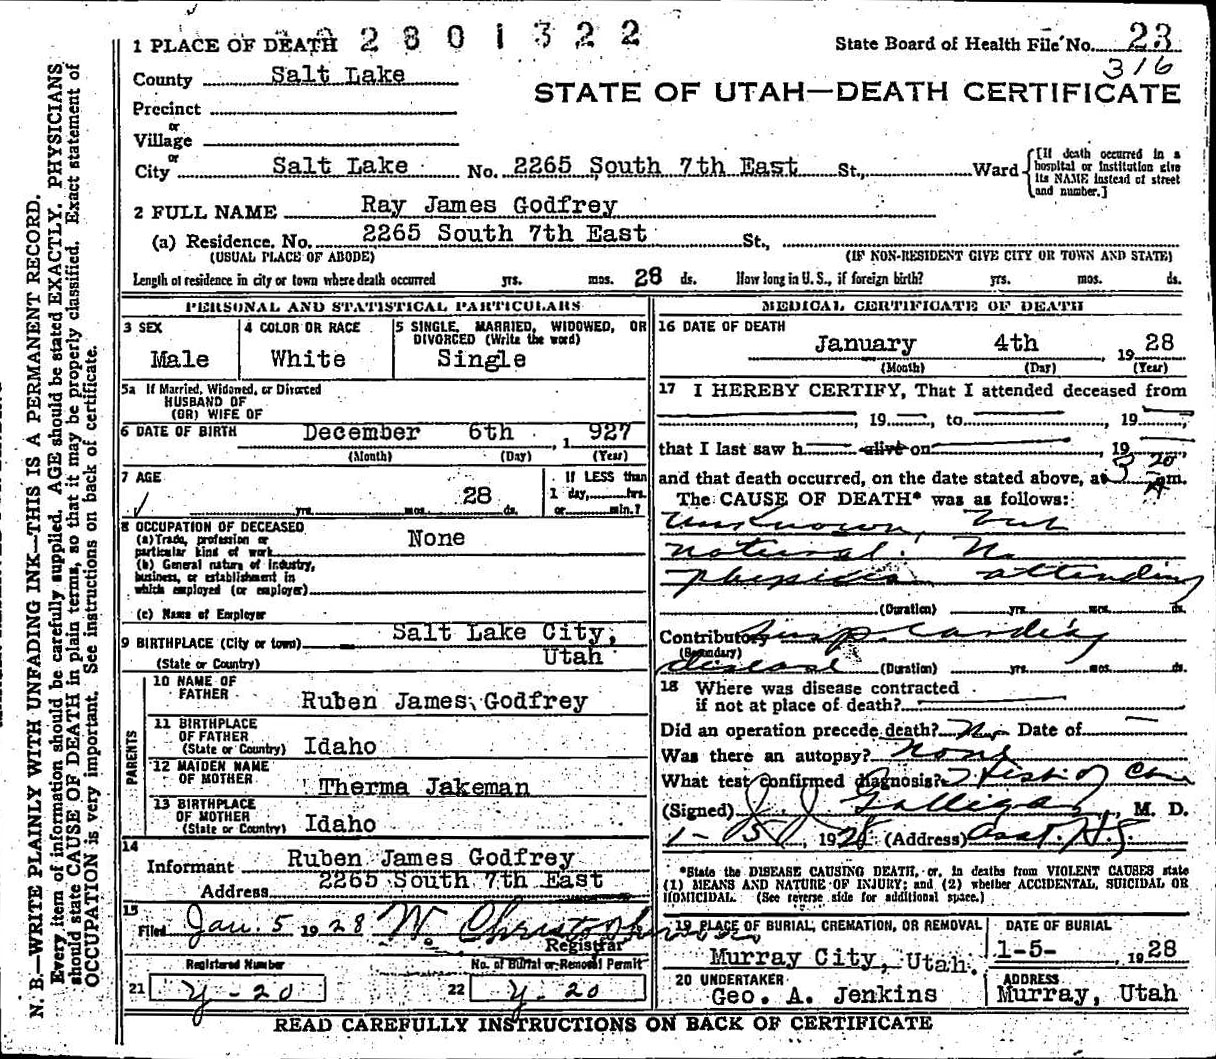 1 PLACE OF DEATH 2801322
State Board of Health File No. 23
316
County Salt Lake
STATE OF UTAH—DEATH CERTIFICATE
Precinct
or
Village
or
City Salt Lake No. 2265 South 7th East St., Ward
[If death occurred in a
hospital or institution give
its NAME instead of street
and number.]
2 FULL NAME Ray James Godfrey
(a) Residence. No. 2265 South 7th East St.,
(USUAL PLACE OF ABODE) (IF NON-RESIDENT GIVE CITY OR TOWN AND STATE)
Length of residence in city or town where death occurred yrs. mos. 28 ds. How long in U. S., if foreign birth? yrs. mos. ds.
PERSONAL AND STATISTICAL PARTICULARS
3 SEX
Male
4 COLOR OR RACE
White
5 SINGLE, MARRIED, WIDOWED, OR
DIVORCED (Write the word)
Single
5a If Married, Widowed, or Divorced
HUSBAND OF
(OR) WIFE OF
6 DATE OF BIRTH December 6th, 1927
(Month) (Day) (Year)
7 AGE
28
yrs. mos. ds.
If LESS than
1 day, hrs.
or min.?
8 OCCUPATION OF DECEASED
(a) Trade, profession or
particular kind of work None
(b) General nature of industry,
business, or establishment in
which employed (or employer)
(c) Name of Employer
9 BIRTHPLACE (City or town) Salt Lake City,
(State or Country) Utah
PARENTS
10 NAME OF
FATHER Ruben James Godfrey
11 BIRTHPLACE
OF FATHER
(State or Country) Idaho
12 MAIDEN NAME
OF MOTHER Therma Jakeman
13 BIRTHPLACE
OF MOTHER
(State or Country) Idaho
14
Informant Ruben James Godfrey
Address 2265 South 7th East
15
Filed Jan. 5 1928 W. Christopherson
Registrar
Registered Number No. of Burial or Removal Permit
21 y-20 22 y-20
MEDICAL CERTIFICATE OF DEATH
16 DATE OF DEATH
January 4th, 1928
(Month) (Day) (Year)
17 I HEREBY CERTIFY, That I attended deceased from
, 19 , to , 19
that I last saw h alive on , 19
and that death occurred, on the date stated above, at 3 20 A m.
The CAUSE OF DEATH* was as follows:
Unknown, but
natural. No
physician attending
(Duration) yrs. mos. ds.
Contributory cardiac
(Secondary)
disease (Duration) yrs. mos. ds.
18 Where was disease contracted
if not at place of death?
Did an operation precede death? No Date of
Was there an autopsy? none
What test confirmed diagnosis? History
(Signed) J J Galligan, M. D.
1-5, 1928 (Address) Asst. H.
*State the DISEASE CAUSING DEATH, or, in deaths from VIOLENT CAUSES state
(1) MEANS AND NATURE OF INJURY; and (2) whether ACCIDENTAL, SUICIDAL OR
HOMICIDAL. (See reverse side for additional space.)
19 PLACE OF BURIAL, CREMATION, OR REMOVAL
Murray City, Utah.
DATE OF BURIAL
1-5- 1928
20 UNDERTAKER
Geo. A. Jenkins
ADDRESS
Murray, Utah
READ CAREFULLY INSTRUCTIONS ON BACK OF CERTIFICATE
N. B.—WRITE PLAINLY WITH UNFADING INK—THIS IS A PERMANENT RECORD.
Every item of information should be carefully supplied. AGE should be stated EXACTLY. PHYSICIANS
should state CAUSE OF DEATH in plain terms, so that it may be properly classified. Exact statement of
OCCUPATION is very important. See instructions on back of certificate.